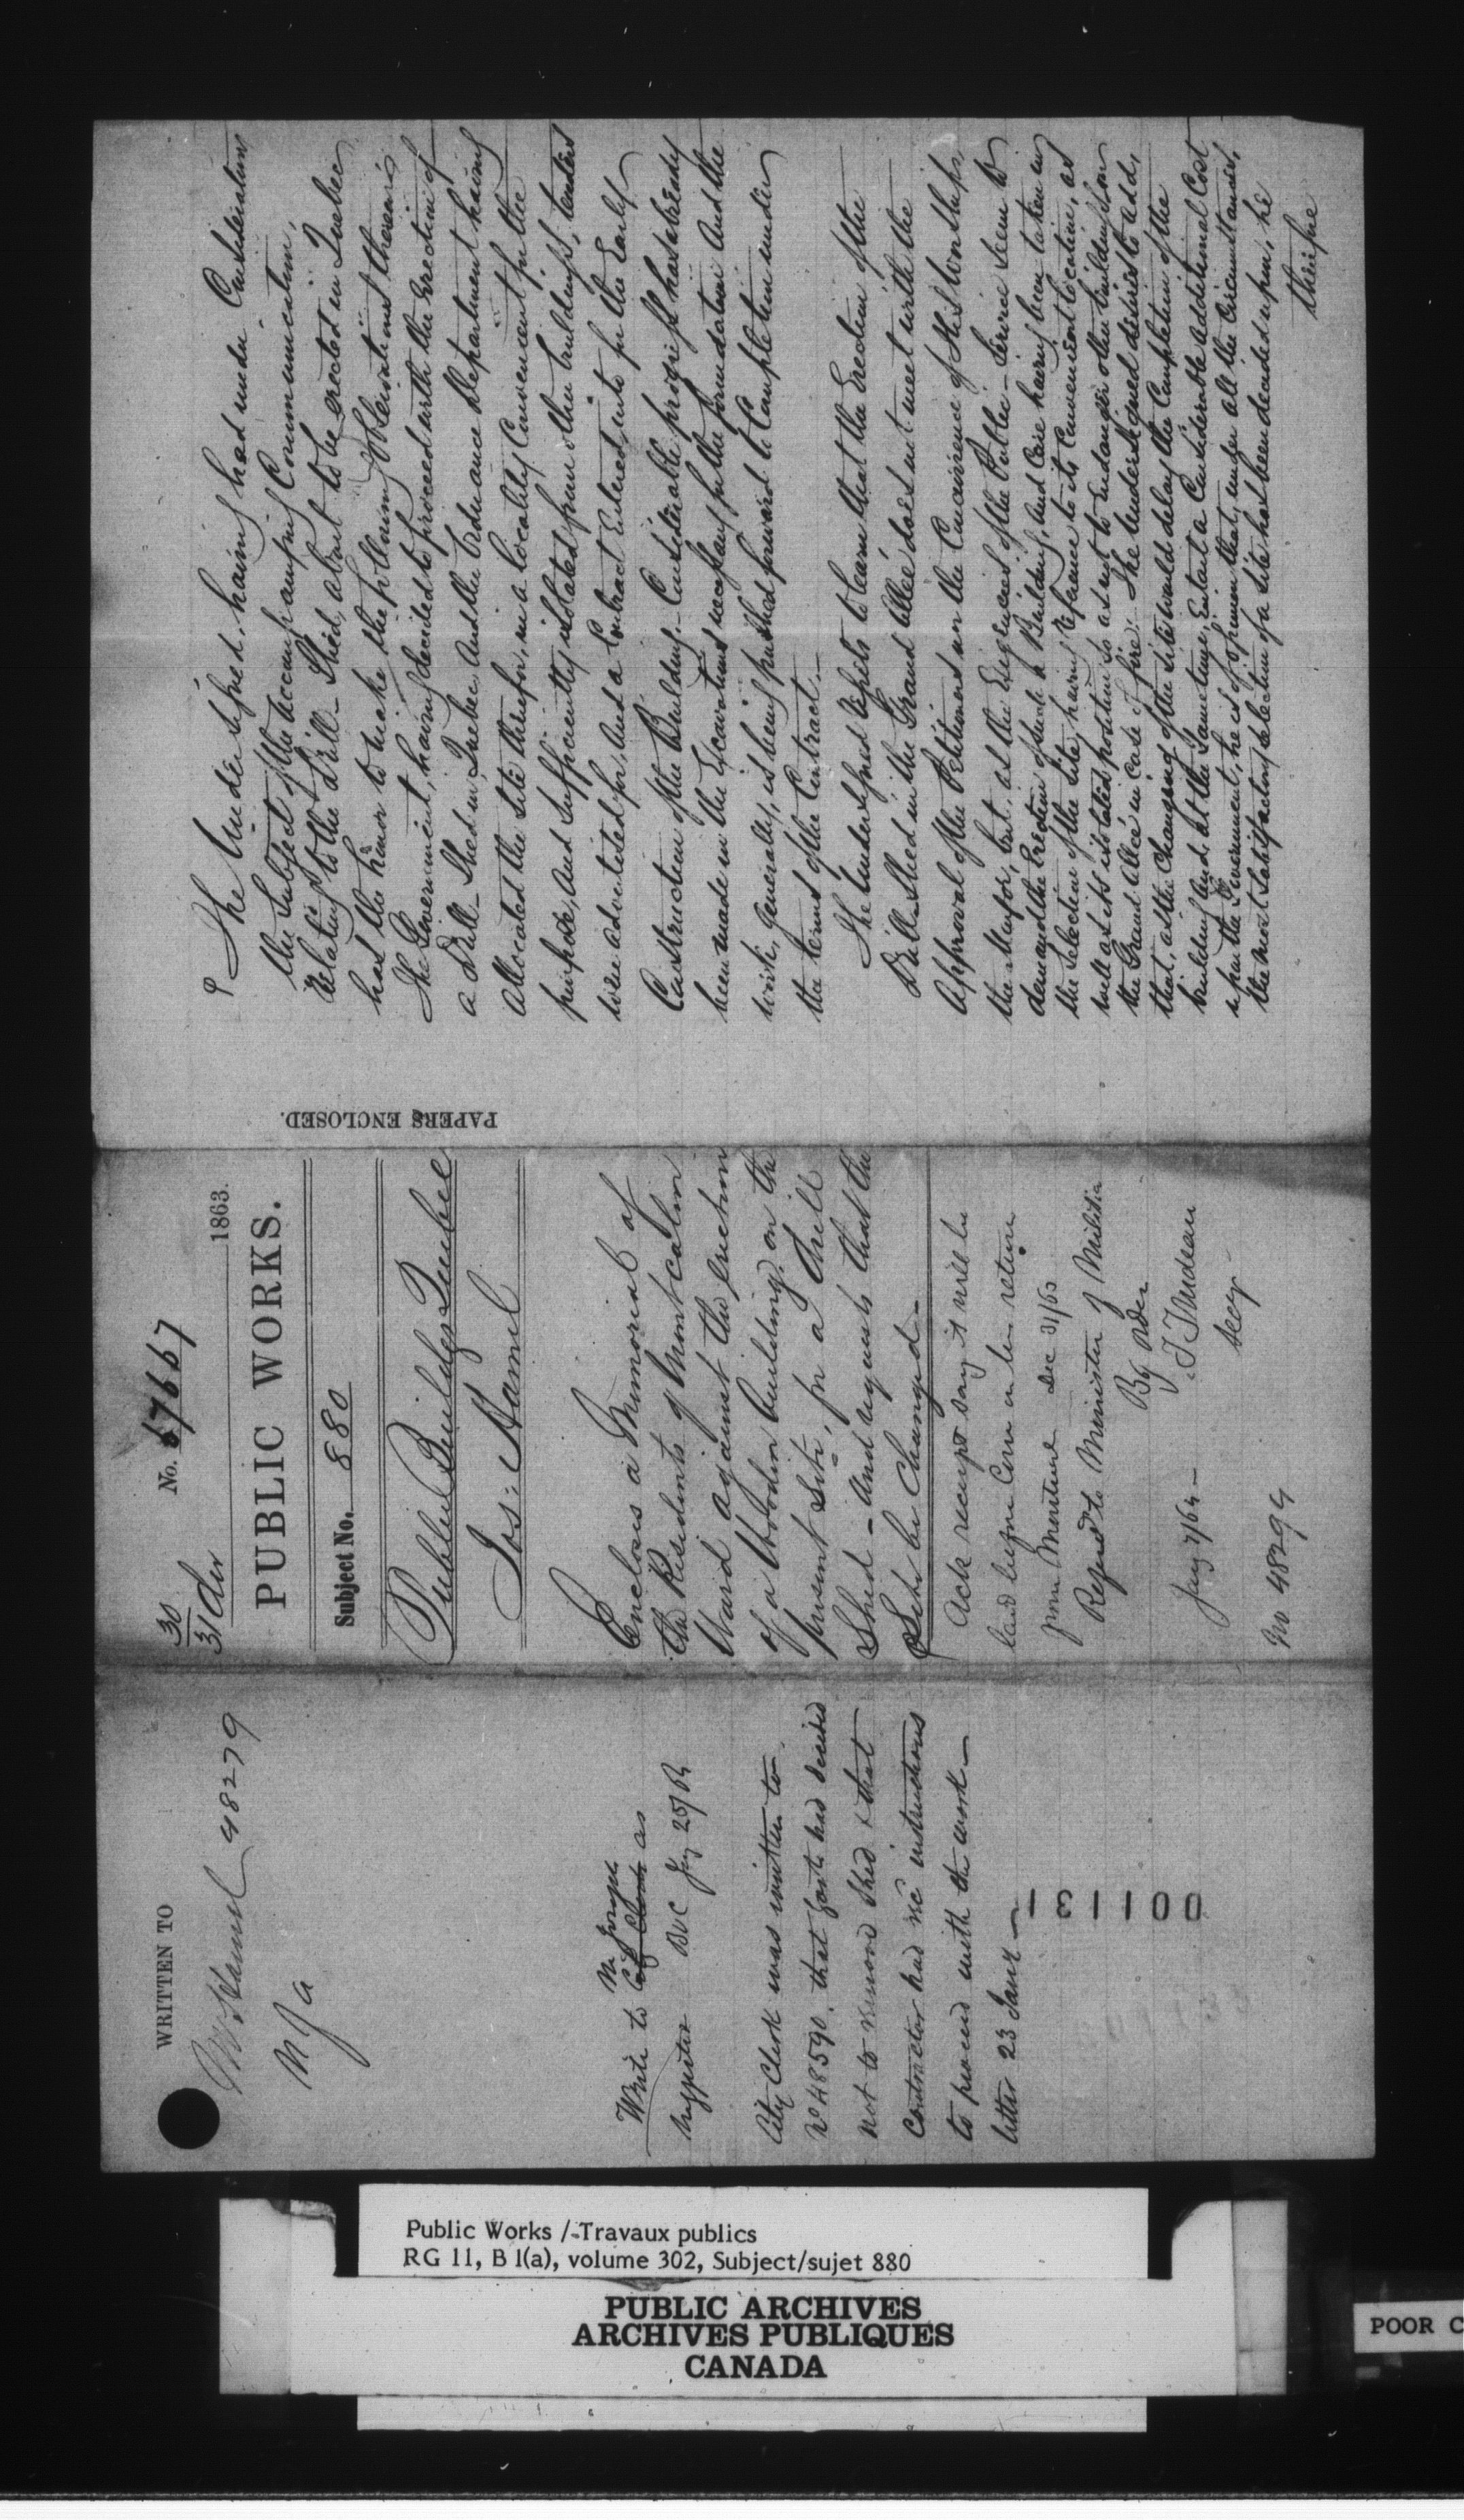 WRITTEN TO
Mr Hamel 48279
N J a
Write to Mr Joseph City Clerk as
BVC Jany 25/64
City Clerk was written to
No 48590. that Govt had decided
not to remove Shed & that
Contractor had rec instructions
to proceed with the work —
letter 23 Jany —
131100
30
31 Dec
No. 67667
1863.
PUBLIC WORKS.
Subject No. 880
Public Buildgs Quebec
Jos: Hamel
Encloses a Memorial of
the Residents of Montcalm
Ward against the erection
of a Wooden building on the
present Site, for a Drill
Shed – and requests that the
Site be Changed –
Ack receipt say it will be
laid before Com on his return
from Montreal Dec 31/63
Refered to Minister of Militia
By Order
T Trudeau
Secy
Jany 7/64 –
No 48294
PAPERS ENCLOSED.
The Undersigned, having had under Consideration
the Subject of the accompanying Communication,
Relating to the Drill-Shed, about to be erected in Quebec
has the honor to make the following observations thereon:
The Government, having decided to proceed with the Erection of
a Drill-Shed in Quebec, and the Ordnance Department having
allocated the Site therefor, in a locality Convenient for the
purpose, and sufficiently isolated from other buildings, tenders
were advertised for, and a Contract Entered into for the Early
Construction of the Building.– Considerable progress has already
been made in the Excavations necessary for the foundation and the
work, generally, is being pushed forward to Completion under
the terms of the Contract.–
The Undersigned regrets to learn that the Erection of the
Drill-Shed in the Grand Allée does not meet with the
approval of the Petitioners nor the Concurrence of His Worship
the Mayor, but, as the Exigencies of the Public-Service seem to
demand the Erection of such a Building, and Care having been taken in
the Selection of the Site, having reference to its Convenient location, as
well as its isolated position so as not to endanger other buildings on
the Grand Allée in case of fire:– The Undersigned desires to add,
that, as the Changing of the Site would delay the Completion of the
building and, at the same time, Entail a Considerable additional Cost
upon the Government, he is of opinion that, under all the Circumstances,
the most Satisfactory Selection of a Site has been decided upon; he
therefore
Public Works / Travaux publics
RG 11, B 1(a), volume 302, Subject/sujet 880
PUBLIC ARCHIVES
ARCHIVES PUBLIQUES
CANADA
POOR C